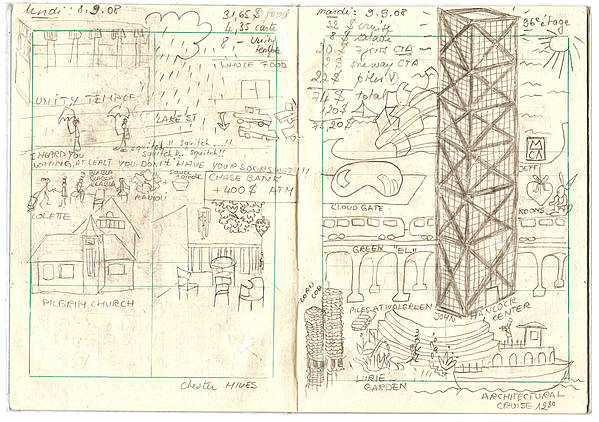 lundi: 8.9.08
31,65 $ food
4,35 carte
8 - Unity
temple
WHOLE FOOD
UNITY TEMPLE
LAKE ST
squitch!! squitch!!
squitch!! squitch!!
I HEARD YOU
COMING, AT LEAST YOU DON'T HAVE YOUR SOCKS WET!!!
BLABLA
BLABLA
BLABLA
RAVIOLI
+
CHASE BANK
+ 400 $ ATM
COLETTE
PILGRIM CHURCH
Chester MIVES
mardi: 9.9.08
32 $ cruise
8 $ salade
20 $ 7 jours CTA
2 $ one way CTA
22 $ piles (V)
74 $ total
96e étage
MCA
JEFF
KOONS
CLOUD GATE
GREEN "EL"
CORN
COB
PILES AT WALGREEN
JOHN HANCOCK
CENTER
LURIE
GARDEN
ARCHITECTURAL
CRUISE 12.30